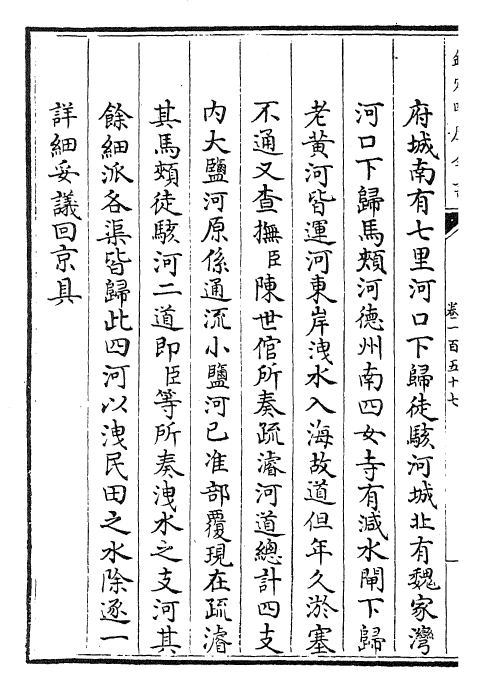 府城南有七里河口下歸徒駭河城北有魏家灣
河口下歸馬頰河德州南四女寺有減水閘下歸
老黃河皆運河東岸洩水入海故道但年久淤塞
不通又查撫臣陳世倌所奏疏濬河道總計四支
内大鹽河原係通流小鹽河已准部覆現在疏濬
其馬頰徒駭河二道即臣等所奏洩水之支河其
餘細派各渠皆歸此四河以洩民田之水除逐一
詳細妥議回京具
卷一百五十七